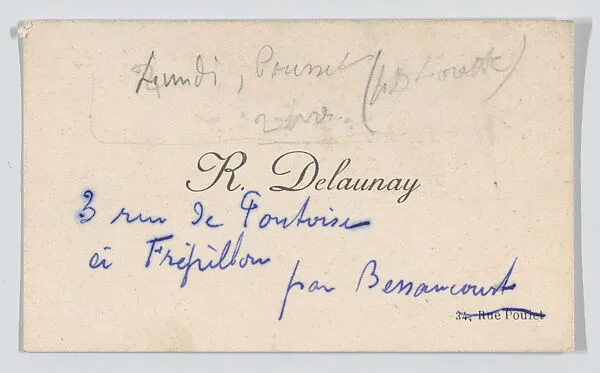 Lundi, Pousset
R. Delaunay
3 rue de Pontoise
à Frépillon
par Bessancourt
34, Rue Poulet